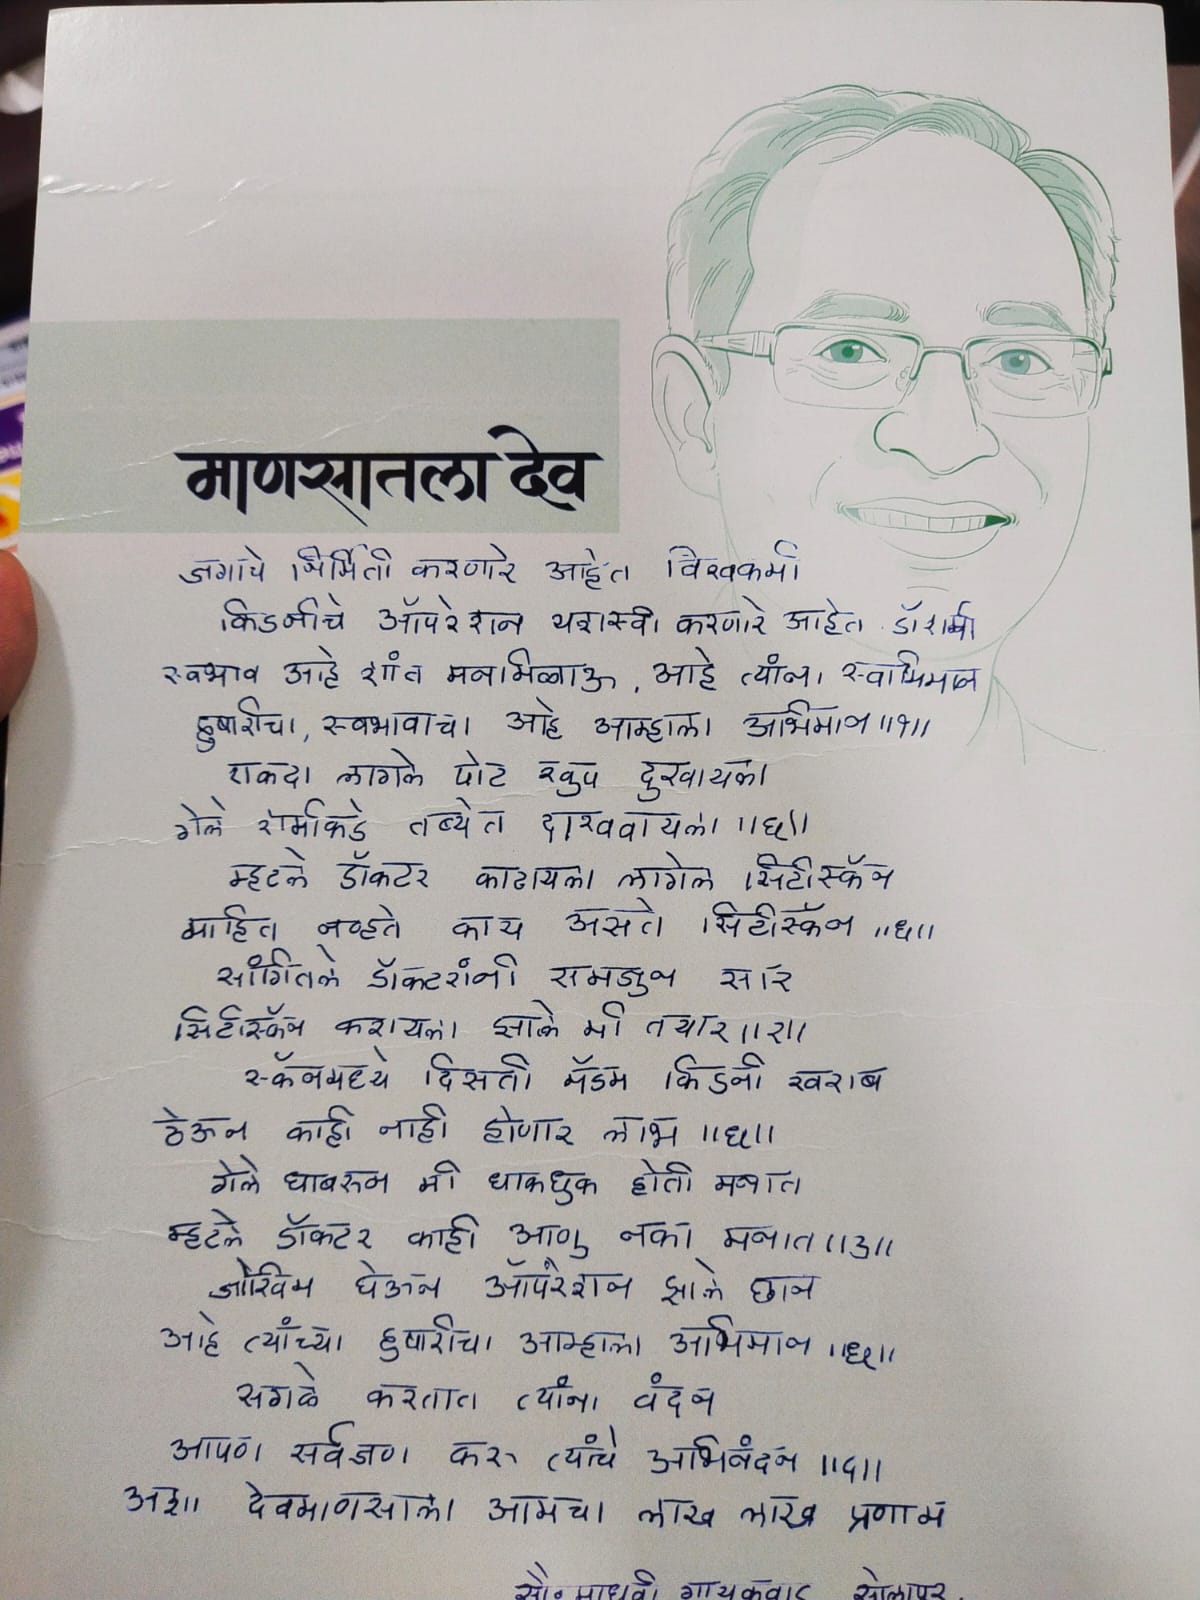 माणसातला देव
जगाचे निर्मिती करणारे आहेत विश्वकर्मा
किडनीचे ऑपरेशन यशस्वी करणारे आहेत डॉ शर्मा
स्वभाव आहे शांत मनमिळाऊ, आहे त्यांना स्वाभिमान
हुषारीचा, स्वभावाचा आहे आम्हाला अभिमान ॥१॥
एकदा लागले पोट खुप दुखायला
गेले शर्माकडे तब्येत दाखवायला ॥धृ॥
म्हटले डॉक्टर काढायला लागेल सिटीस्कॅन
माहित नव्हते काय असते सिटीस्कॅन ॥धृ॥
सांगितले डॉक्टरांनी समजुन सार
सिटीस्कॅन करायला झाले मी तयार ॥२॥
स्कॅनमध्ये दिसती मॅडम किडनी खराब
ठेऊन काही नाही होणार लाभ ॥धृ॥
गेले घाबरून मी धाकधुक होती मनात
म्हटले डॉक्टर काही आणु नका मनात ॥३॥
जोखिम घेऊन ऑपरेशन झाले छान
आहे त्यांच्या हुषारीचा आम्हाला अभिमान ॥धृ॥
सगळे करतात त्यांना वंदन
आपण सर्वजण करू त्यांचे अभिनंदन ॥५॥
अशा देवमाणसाला आमचा लाख लाख प्रणाम
सौ. माधवी गायकवाड सोलापूर.